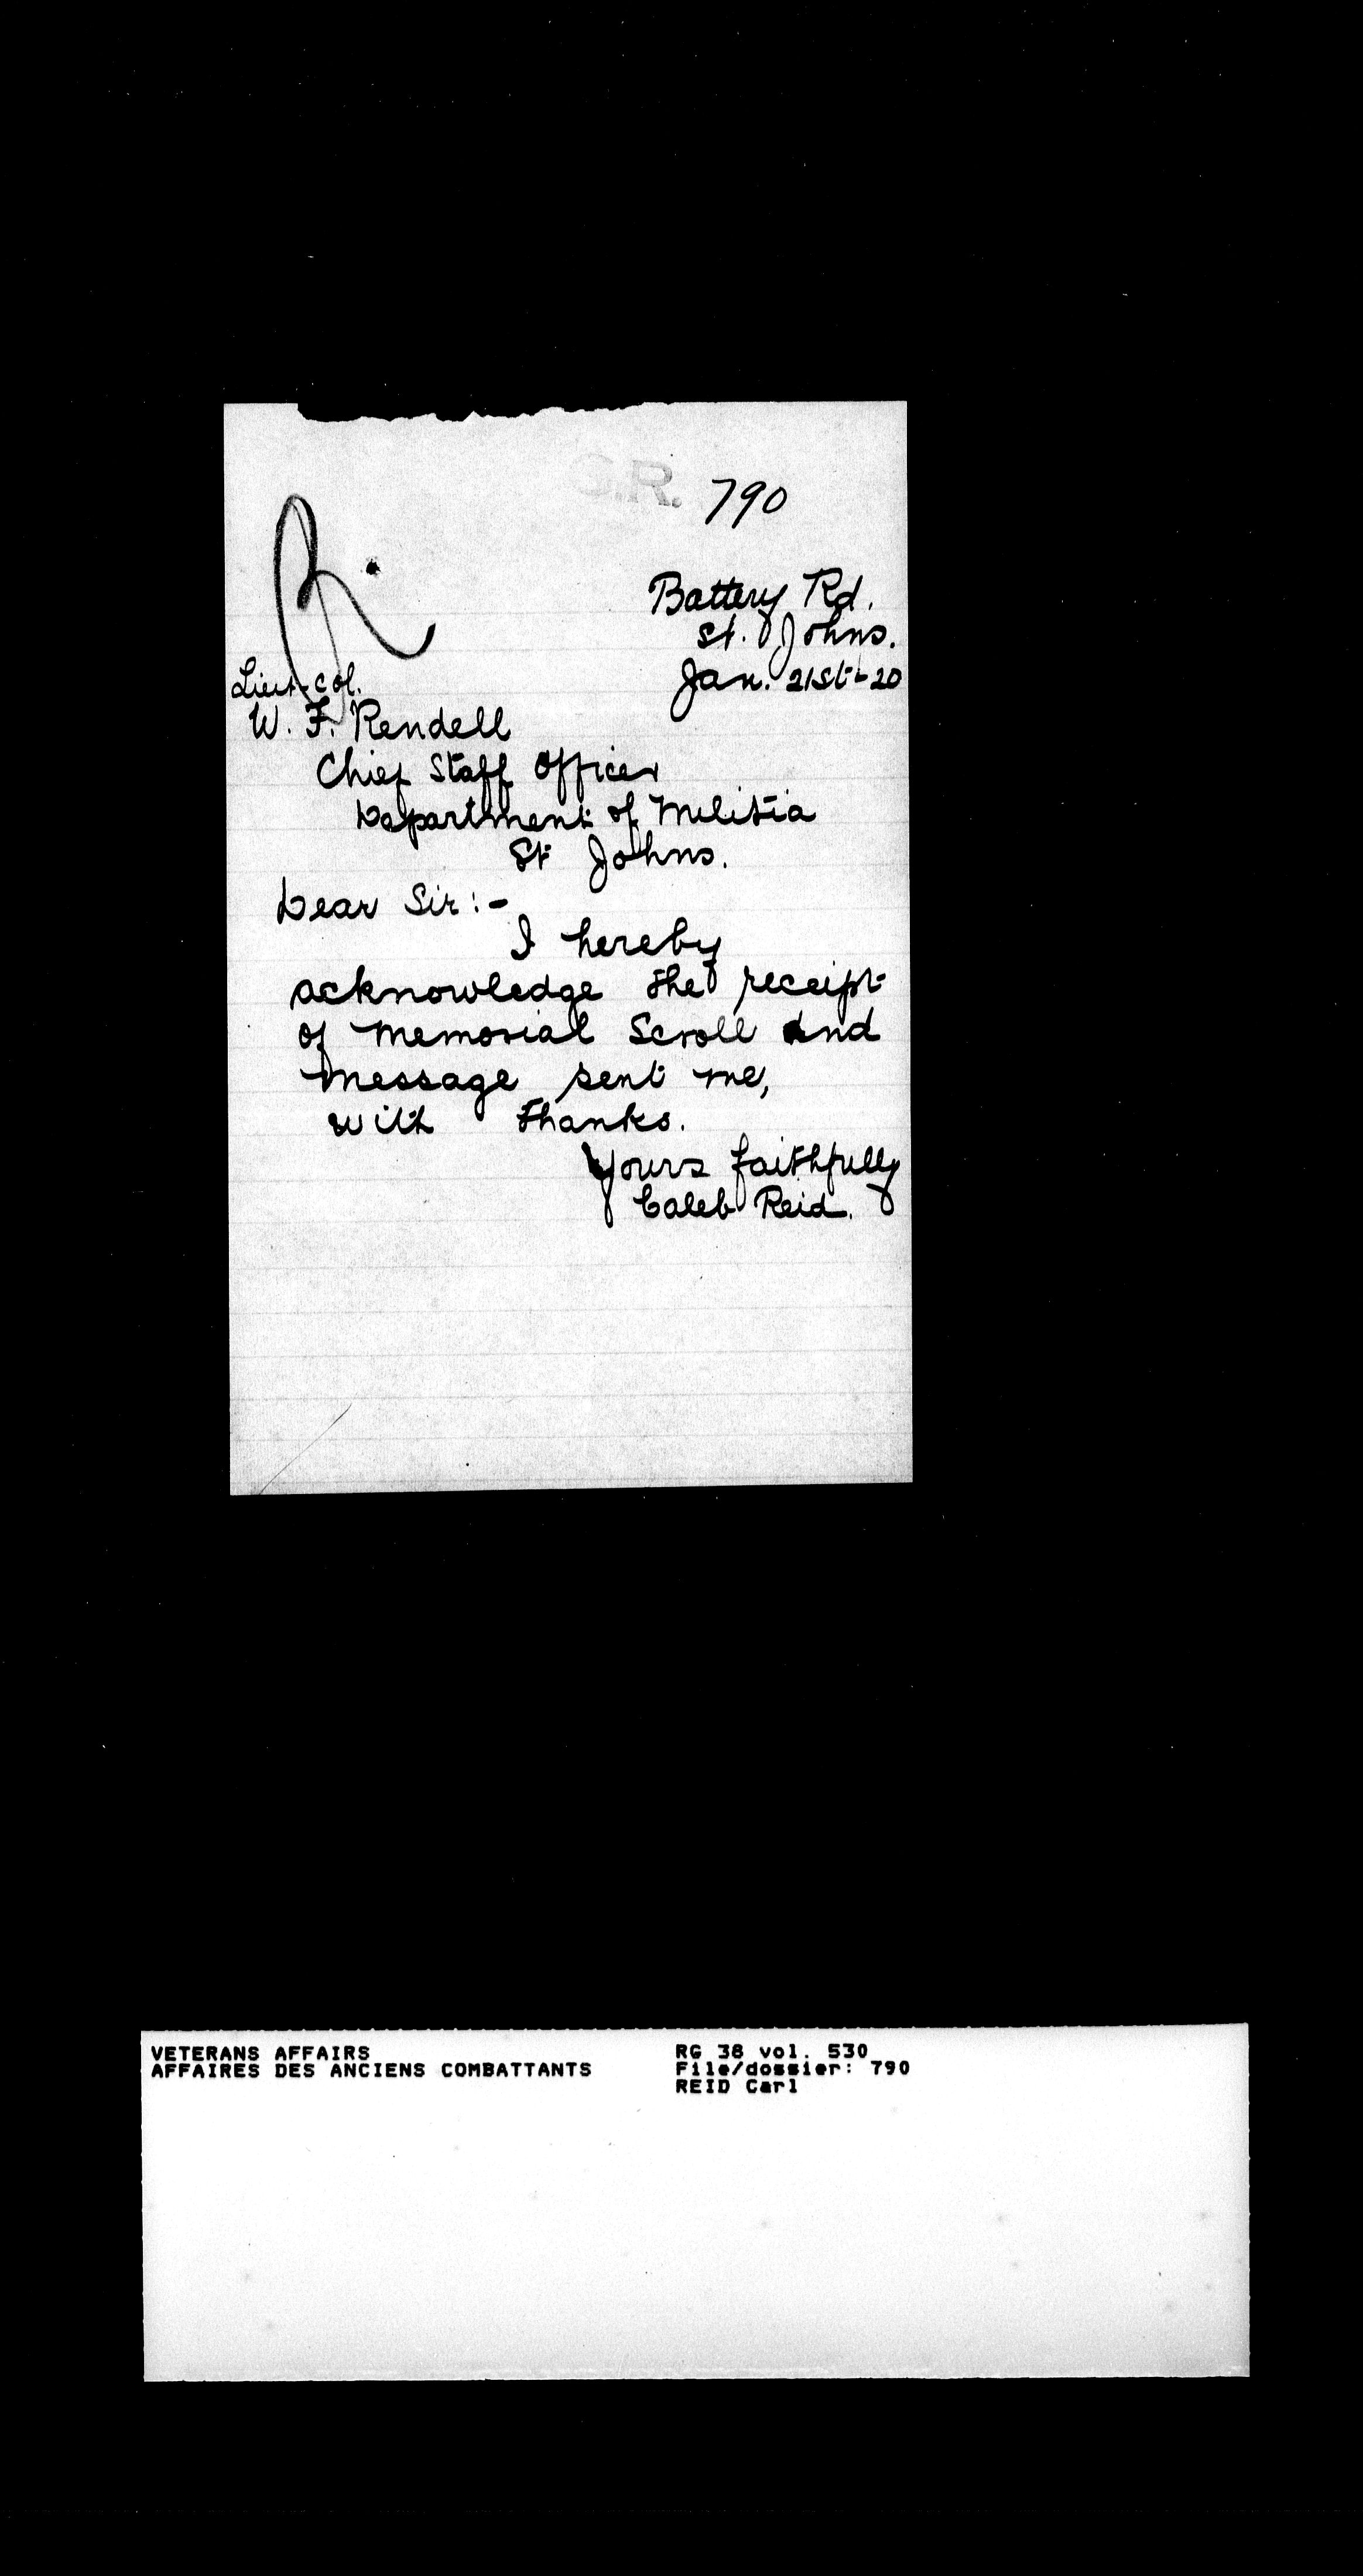 C.R. 790
R.
Battery Rd.
St. Johns.
Jan. 21st-20
Lieut-Col.
W. F. Rendell
Chief Staff Officer
Department of Militia
St Johns.
Dear Sir:-
I hereby
acknowledge the receipt
of Memorial Scroll And
Message sent me,
with thanks.
Yours faithfully
Caleb Reid.
VETERANS AFFAIRS RG 38 vol. 530
AFFAIRES DES ANCIENS COMBATTANTS File/dossier: 790
REID Carl